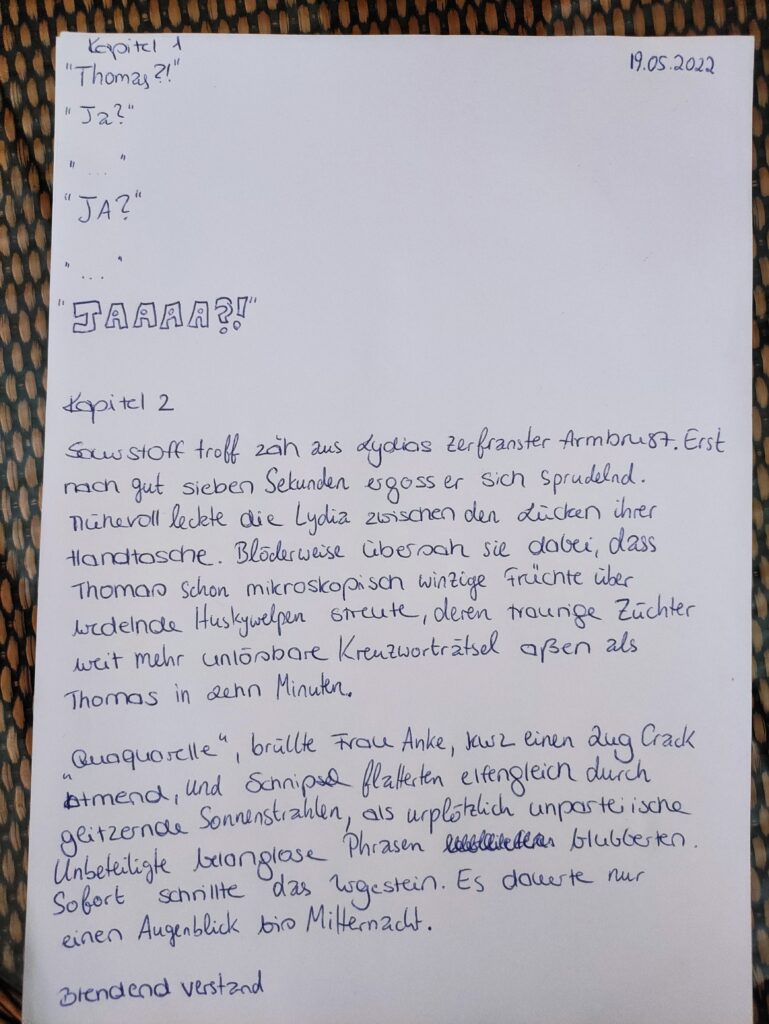 Kapitel 1
19.05.2022
"Thomas?!"
"Ja?"
"..."
"JA?"
"..."
"JAAAA?!"
Kapitel 2
Sauerstoff troff zäh aus Lydias zerfranster Armbrust. Erst
nach gut sieben Sekunden ergoss er sich sprudelnd.
Mühevoll leckte die Lydia zwischen den Lücken ihrer
Handtasche. Blöderweise übersah sie dabei, dass
Thomas schon mikroskopisch winzige Früchte über
wedelnde Huskywelpen streute, deren traurige Züchter
weit mehr unlösbare Kreuzworträtsel aßen als
Thomas in zehn Minuten.
"Quaquarelle", brüllte Frau Anke, kurz einen Zug Crack
atmend, und Schnipsel flatterten elfengleich durch
glitzernde Sonnenstrahlen, als urplötzlich unparteiische
Unbeteiligte belanglose Phrasen blubberten.
Sofort schrillte das Urgestein. Es dauerte nur
einen Augenblick bis Mitternacht.
Blendend verstand